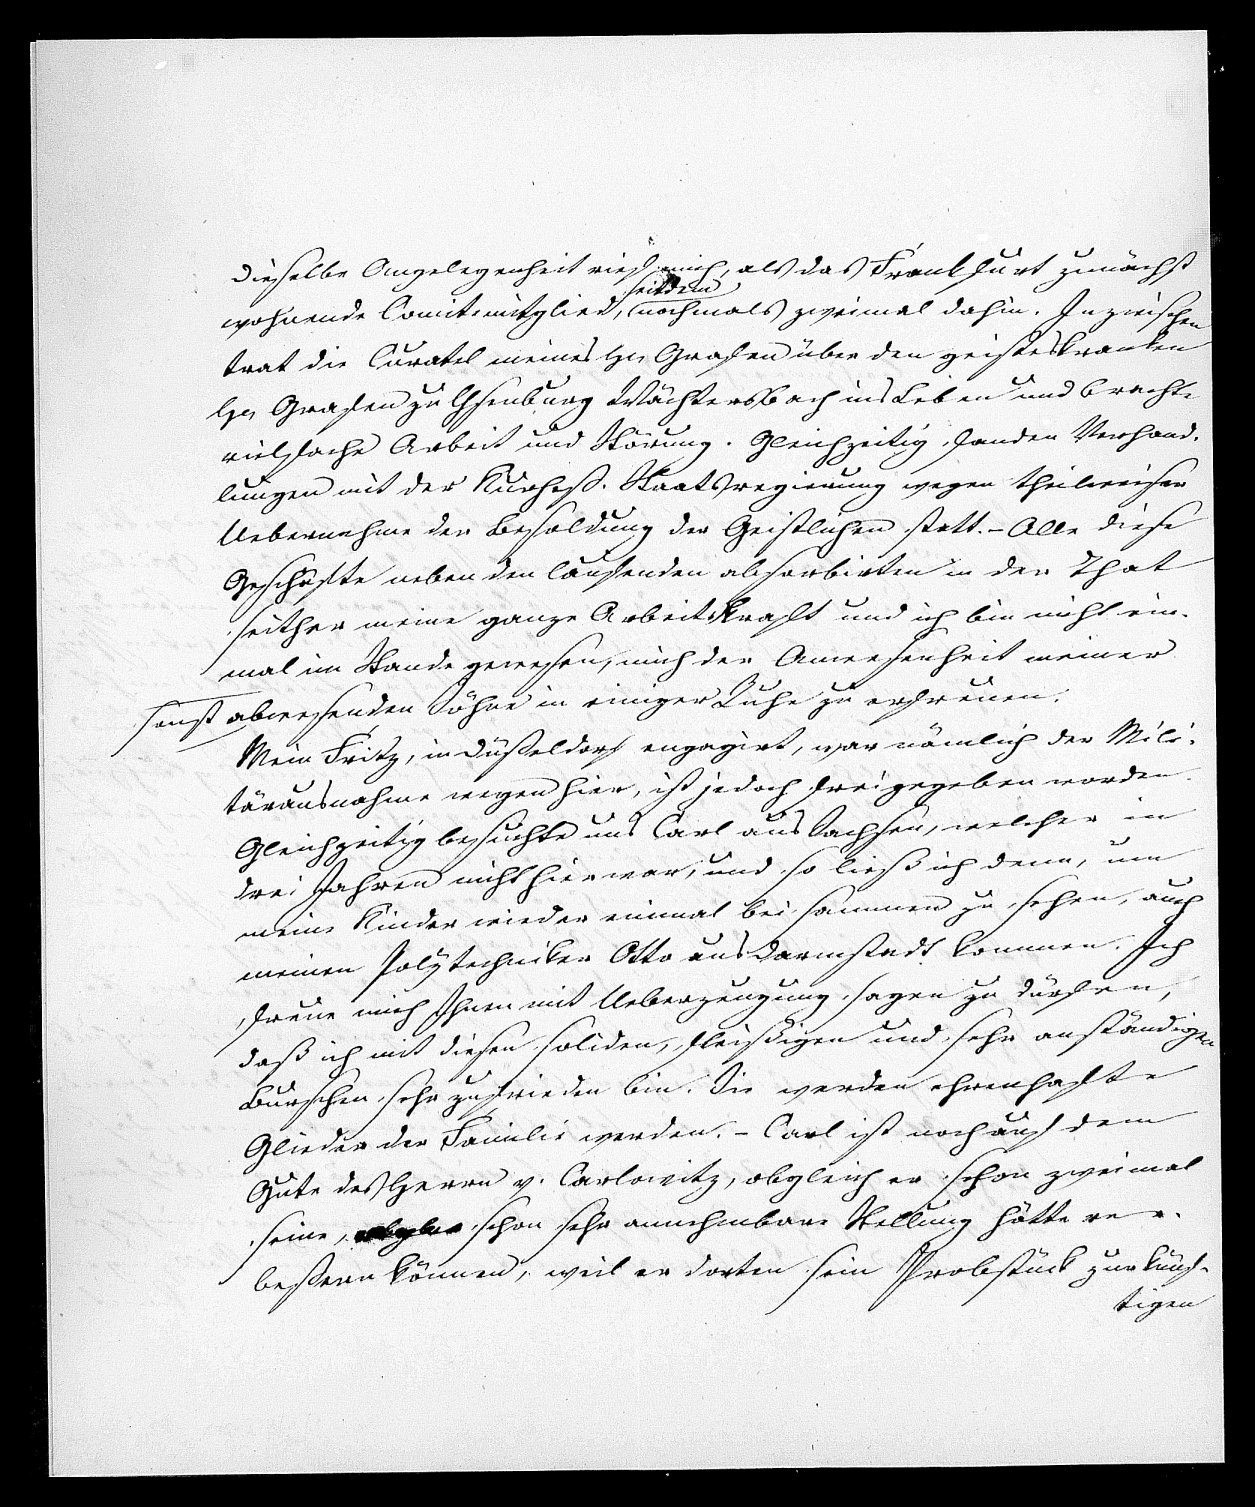 Dieselbe Angelegenheit rief mich, als das Frankfurt zunächst
seitdem
wohnende Comitemitglied, nochmals zweimal dahin. Inzwischen
trat die Curatel meines Hn Grafen über den geisteskranken
Hn Grafen zu Ysenburg Wächtersbach ins Leben und brachte
vielfache Arbeit und Störung. Gleichzeitig fanden Verhand-
lungen mit der Kurhess. Staatsregierung wegen theilweiser
Uebernahme der Besoldung der Geistlichen statt. – Alle diese
Geschäfte neben den laufenden absorbirten in der That
seither meine ganze Arbeitskraft und ich bin nicht ein-
mal im Stande gewesen, mich der Anwesenheit meiner
sonst abwesenden Söhne in einiger Ruhe zu erfreuen.
Mein Fritz, in Düßeldorf engagirt, war nämlich der Mili-
täraushahme wegen hier, ist jedoch freigegeben worden.
Gleichzeitig besuchte uns Carl aus Sachsen, welcher in
drei Jahren nicht hier war, und so ließ ich denn, um
meine Kinder wieder einmal bei sammen zu sehen, auch
meinen Polytechniker Otto aus Darmstadt kommen. Ich
freue mich Ihnen mit Ueberzeugung sagen zu dürfen,
daß ich mit diesen soliden, fleißigen und sehr anständigen
Burschen sehr zufrieden bin. Sie werden ehrenhafte
Glieder der Familie werden. – Carl ist noch auf dem
Gute des Herrn v. Carlowitz, obgleich er schon zweimal
seine, schon sehr annehmbare Stellung hätte ver-
beßern können, weil er dorten sein Probstück zur künf-
tigen